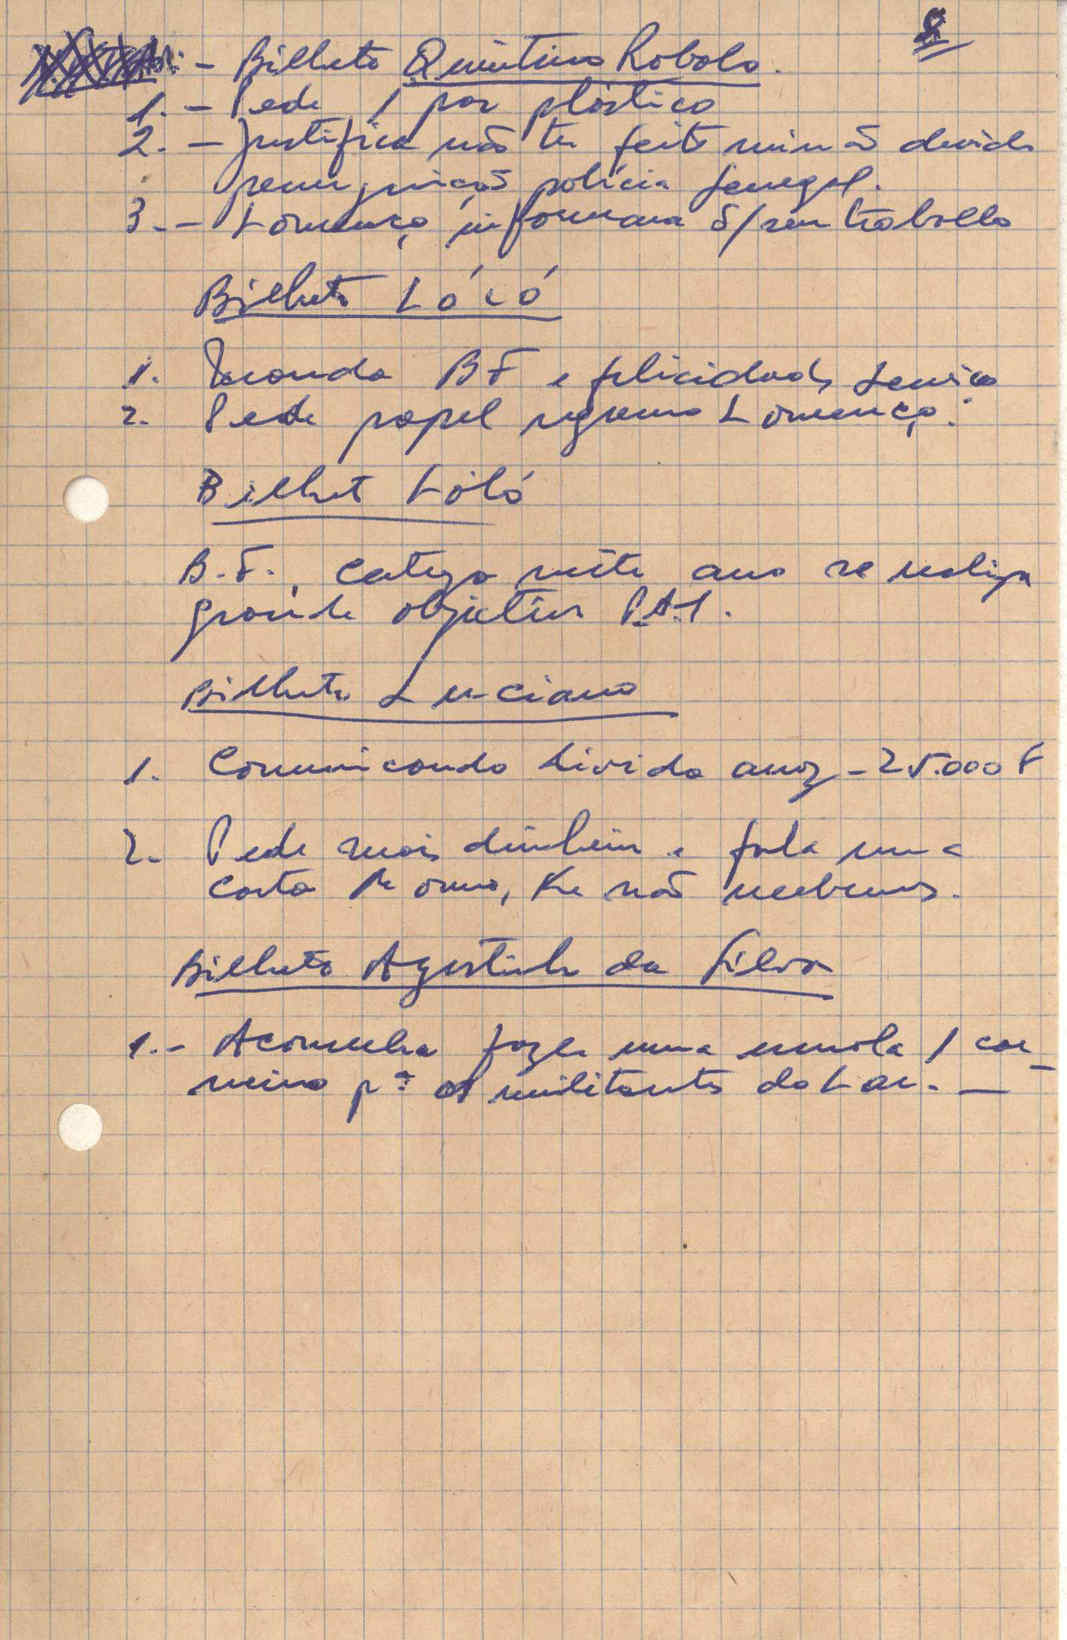 8
- Bilhete Quintino Robolo.
1. - Pede 1 par plástico
2. - Justifica não ter feito reunião devido
perseguição polícia Senegal.
3. - Lourenço informará s/ seu trabalho
Bilhete Lócó
1. Manda BF e felicidades
2. Pede papel Lourenço.
Bilhete Lóló
B.F., certeza neste ano se realiza
grande objetivo P.A.I.
Bilhete Luciano
1. Comunicando dívida arroz - 25.000 F
2. Pede mais dinheiro e fala uma
carta Momo, ke não recebemos.
Bilhete Agostinho da Silva
1. - Aconselha fazer uma esmola 1 car-
neiro pª os militantes do Lar. —